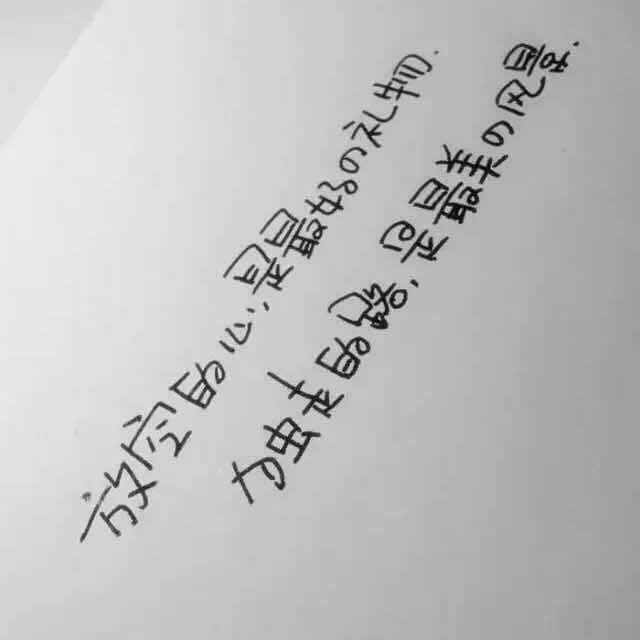 放空的心,是最好の礼物.
独走的路.是最美の风景.